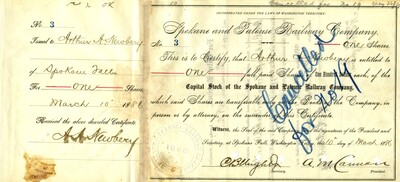 No. 3
Issued to Arthur A. Newbery
of Spokane Falls
For One Shares
March 10th 188
Received the above described Certificate
A. A. Newbery
INCORPORATED UNDER THE LAWS OF WASHINGTON TERRITORY.
Spokane and Palouse Railway Company.
No. 3
One Shares
This is to Certify, that Arthur Newbery is entitled to
One full paid Shares of each of the
Capital Stock of the Spokane and Palouse Railway Company,
which said Shares are transferable the Company, in
person or by attorney, on the surrender of this Certificate.
Witness, the Seal of the and the signatures of the President and
Secretary, at Spokane Falls, Washington this 10th day of March 188
A. M. Cannon
Cancelled
for No 19